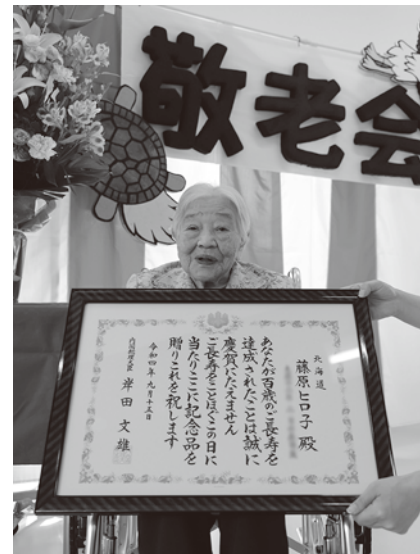 敬老会
北海道
藤原ヒロ子殿
あなたが百歳のご長寿を
達成されたことは誠に
慶賀にたえません
ご長寿をことほぐこの日に
当たりここに記念品を
贈りこれを祝します
令和四年九月十五日
内閣総理大臣 岸田文雄